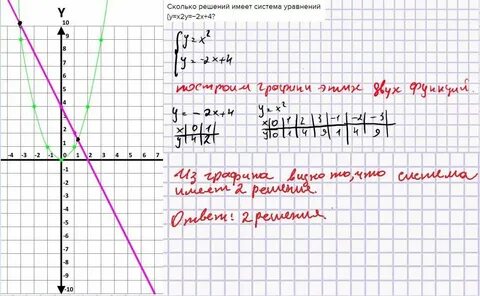 Сколько решений имеет система уравнений
{y=x2y=−2x+4?
y = x²
y = -2x+4
построим графики этих двух функций.
y = -2x+4
x 0 1
y 4 2
y = x²
x 0 1 2 3 -1 -2 -3
y 0 1 4 9 1 4 9
Из графика видно то, что система
имеет 2 решения.
Ответ: 2 решения.
Y
10
9
8
7
6
5
4
3
2
1
-4 -3 -2 -1 0 1 2 3 4 5 6 7
-1
-2
-3
-4
-5
-6
-7
-8
-9
-10